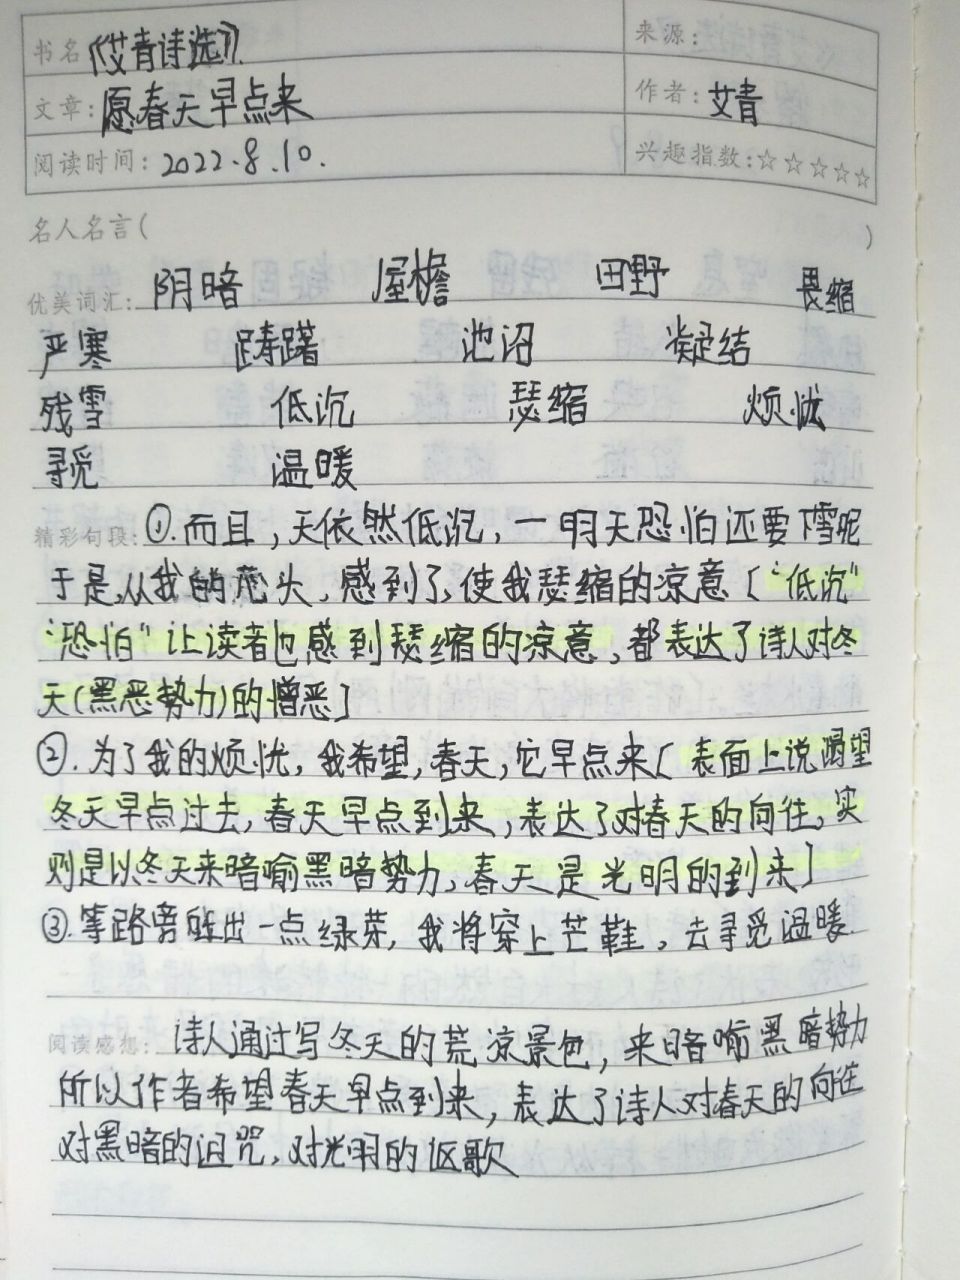 书名《艾青诗选》
来源:
文章:愿春天早点来
作者:艾青
阅读时间:2022.8.10.
兴趣指数:☆☆☆☆☆
名人名言( )
优美词汇: 阴暗 屋檐 田野 畏缩
严寒 踌躇 池沼 凝结
残雪 低沉 瑟缩 烦忧
寻觅 温暖
精彩句段:①.而且,天依然低沉,一明天恐怕还要下雪呢
于是,从我的心头,感到了,使我瑟缩的凉意[“低沉”
“恐怕”让读者也感到瑟缩的凉意,都表达了诗人对冬
天(黑恶势力)的憎恶]
②.为了我的烦忧,我希望,春天,它早点来[表面上说渴望
冬天早点过去,春天早点到来,表达了对春天的向往,实
则是以冬天来暗喻黑暗势力,春天是光明的到来]
③.等路旁伸出一点绿芽,我将穿上芒鞋,去寻觅温暖.
阅读感想: 诗人通过写冬天的荒凉景色,来暗喻黑暗势力
所以作者希望春天早点到来,表达了诗人对春天的向往
对黑暗的诅咒,对光明的讴歌